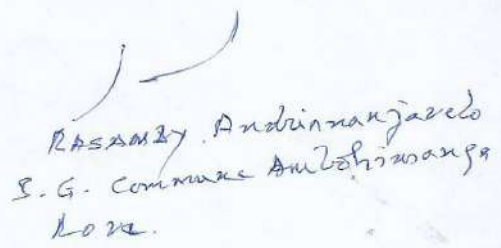 RASAMBY Andrianmanjavelo
S. G. Commune Ambohimanga
Rova.